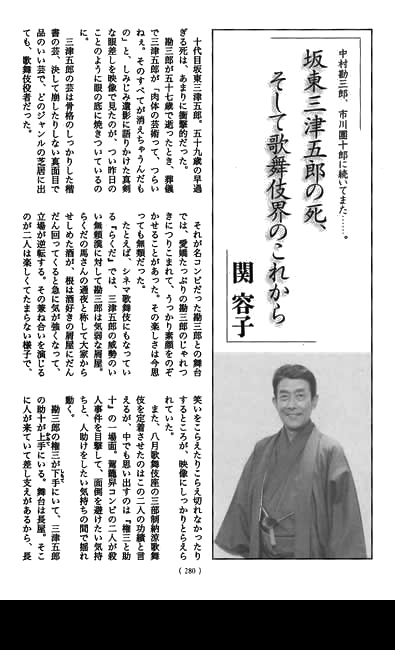 中村勘三郎、市川團十郎に続いてまた……。
坂東三津五郎の死、
そして歌舞伎界のこれから
関 容子
十代目坂東三津五郎。五十九歳の早過
ぎる死は、あまりに衝撃的だった。
勘三郎が五十七歳で逝ったとき、葬儀
で三津五郎が、「肉体の芸術って、つらい
ねぇ。そのすべてが消えちゃうんだも
の」と、しみじみ遺影に語りかけた真剣
な眼差しを映像で見たのが、つい昨日の
ことのように眼の底に焼きついているの
に。
三津五郎の芸は骨格のしっかりした楷
書の芸、決して崩したりしない真面目で
品のいい芸で、どのジャンルの芝居に出
ても、歌舞伎役者だった。
それが名コンビだった勘三郎との舞台
では、愛嬌たっぷりの勘三郎のじゃれつ
きにつりこまれて、うっかり素顔をのぞ
かせることがあった。その楽しさは今思
っても無類だった。
たとえば、シネマ歌舞伎にもなってい
る『らくだ』では、三津五郎の威勢のい
い無頼漢に対して勘三郎は気弱な屑屋。
らくだの馬さんの通夜と称して大家から
せしめた酒が、根は酒好きの屑屋にだん
だん回ってくると急に気が強くなって、
立場が逆転する。その兼ね合いを演じる
のが二人は楽しくてたまらない様子で、
笑いをこらえたりこらえ切れなかったり
するところが、映像にしっかりとらえら
れていた。
また、八月歌舞伎座の三部制納涼歌舞
伎を定着させたのはこの二人の功績と言
えるが、中でも思い出すのは『権三と助
十』の一場面。駕籠舁コンビの二人が殺
人事件を目撃して、面倒を避けたい気持
ちと、人助けをしたい気持ちの間で揺れ
動く。
勘三郎の権三が下手にいて、三津五郎
の助十が上手にいる。舞台は長屋。そこ
に人が来ていて差し支えがあるから、長
( 280 )